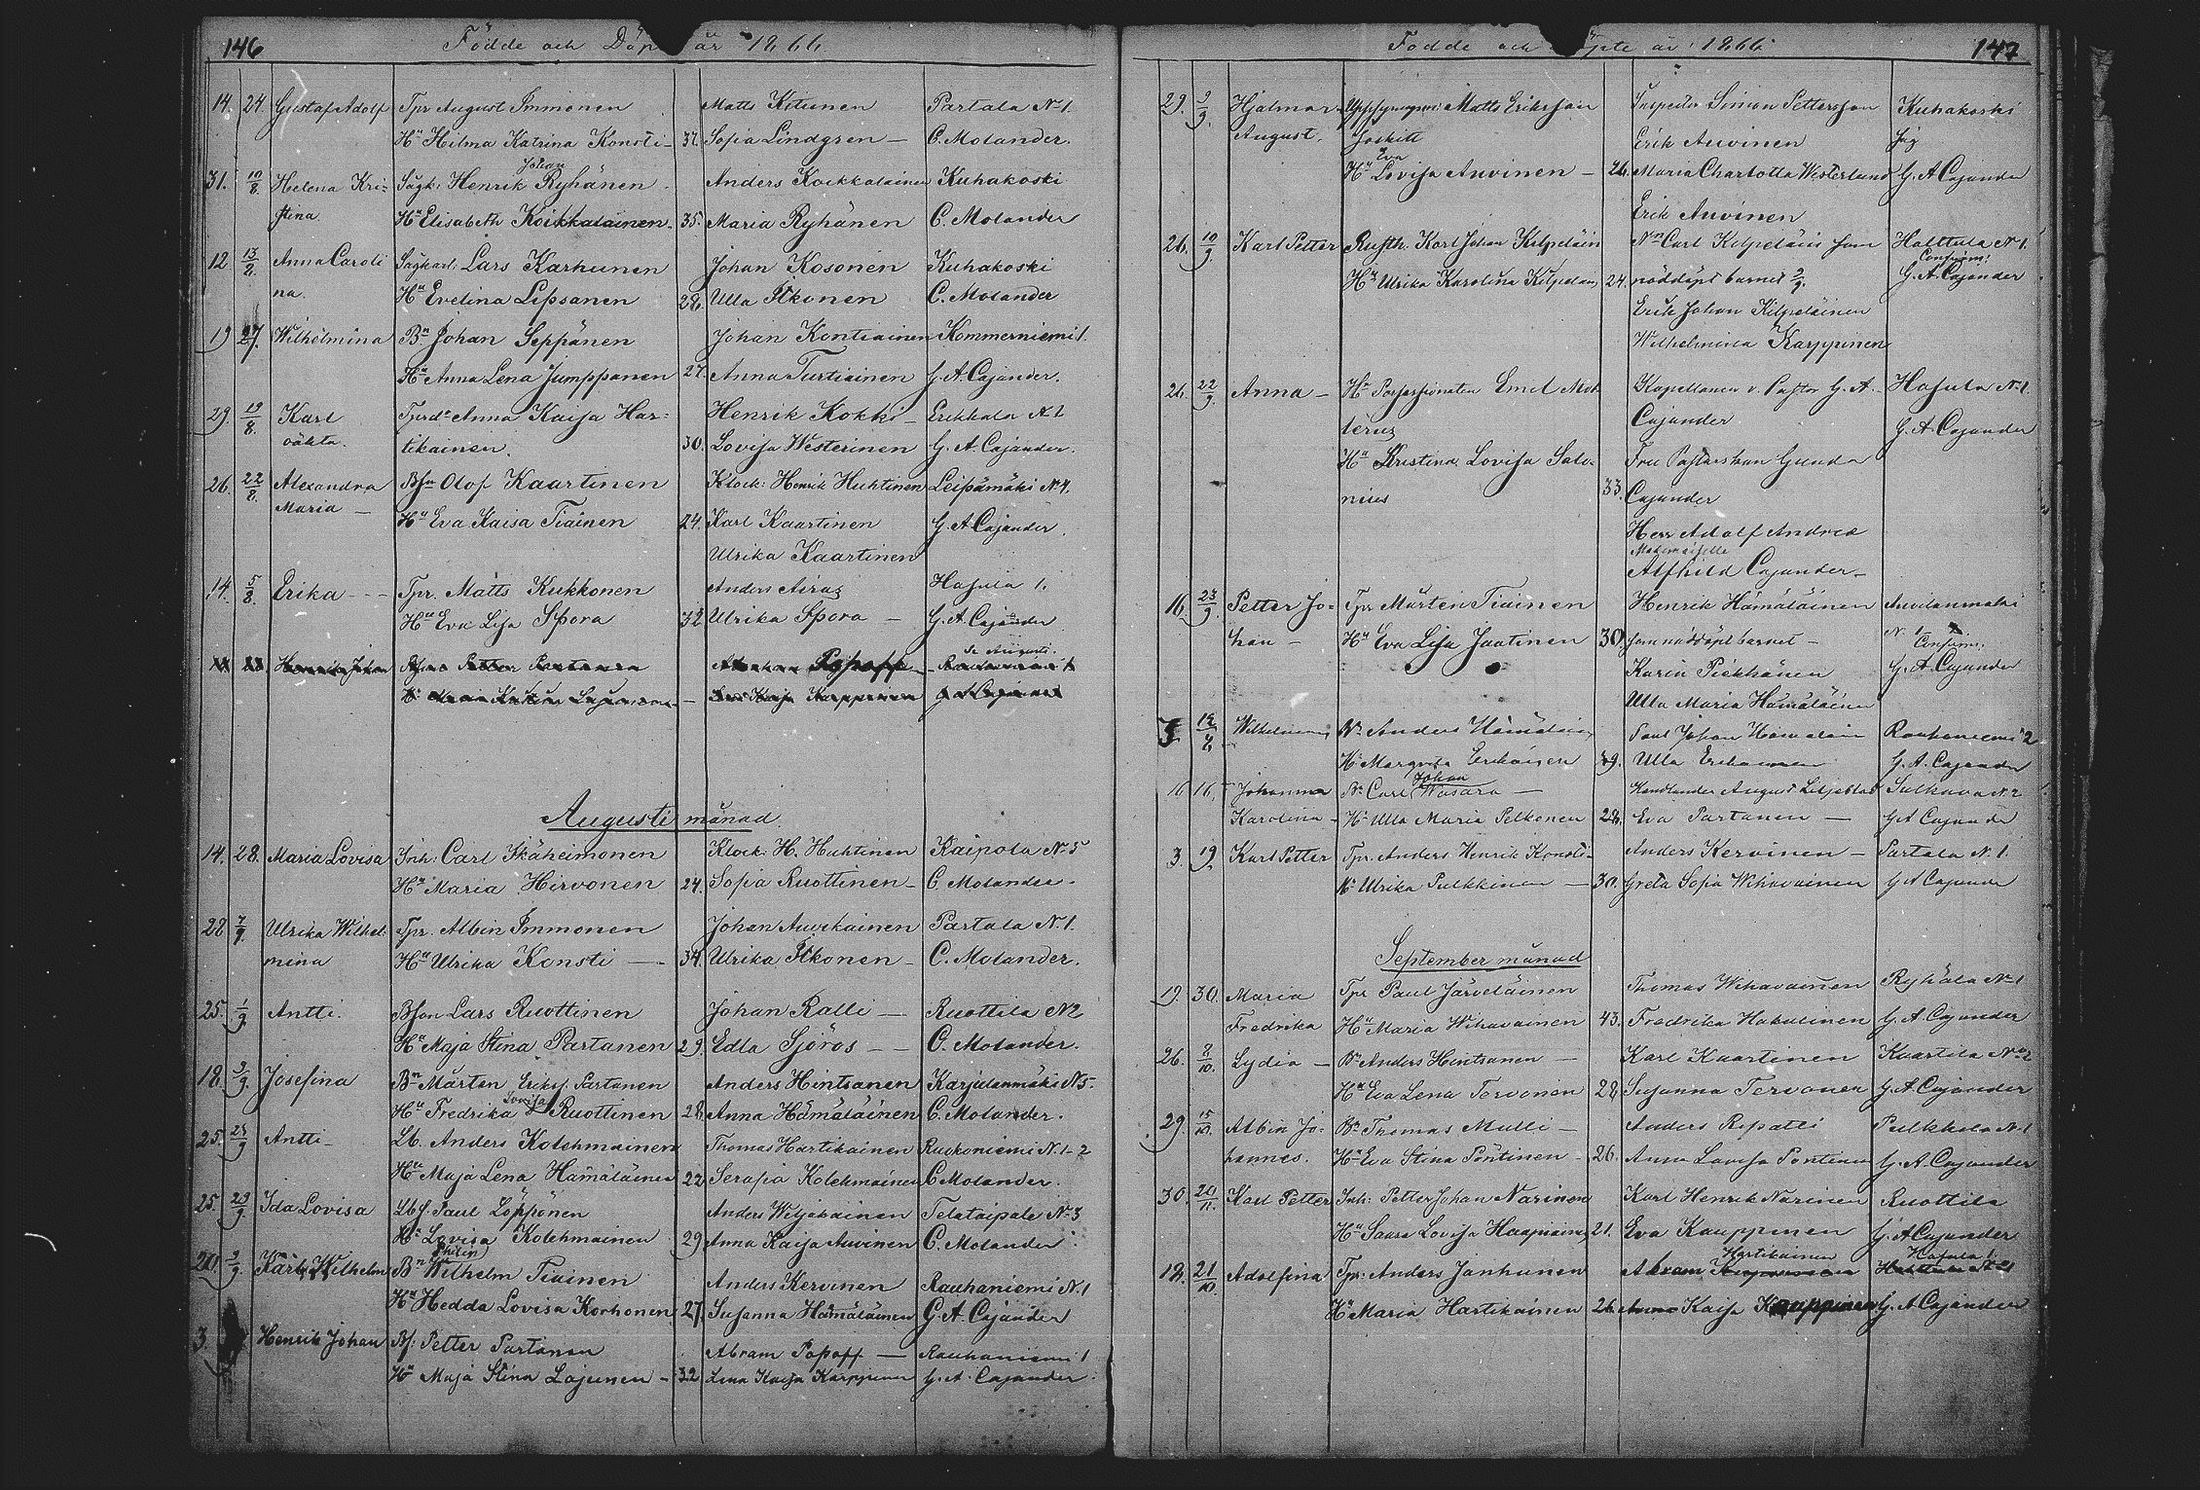 146 Födde och Döp är 1866
14. 24. Gustaf Adolf Tpr August Immonen Matts Kitunen Partala No 1.
Hu Hilma Katrina Konsti- 37. Sofia Lindgren — C. Molander.
Johan
31. 10/8. Helena Kri- Sågk: Henrik Ryhänen. Anders Koikkalainen Kuhakoski
stina Hu Elisabeth Koikkalainen. 35. Maria Ryhänen C. Molander
12 13/8. Anna Caroli Sågkarl: Lars Karhunen Johan Kosonen Kuhakoski
na. Hu Evelina Lipsanen 28. Ulla Itkonen C. Molander
19 27. Wilhelmina Bn Johan Seppänen Johan Kontiainen Kommerniemi 1.
Hu Anna Lena Jumppanen 27. Anna Turtiainen G. A. Cajander.
29. 19/8. Karl Anna Kaisa Har- Henrik Kokki — Erikkala N. 2
oäkta. tikainen. 30. Lovisa Westerinen G. A. Cajander.
26. 22/8. Alexandra Bsn Olof Kaartinen Klock: Henrik Huhtinen Leipämäki No 4.
Maria — Hu Eva Kaisa Tiainen 24. Karl Kaartinen G. A Cajander.
Ulrika Kaartinen
14. 5/8. Erika — Tpr. Matts Kukkonen Anders Hasula 1.
Hu Eva Lisa Spora 32 Ulrika Spora — G. A. Cajander
Se Augusti.
Henrik Johan Petter Partanen Popoff
Karppinen
Augusti månad.
14. 28. Maria Lovisa Inh: Carl Ikäheimonen Klock: H. Huhtinen Kaipola No 5
Hu Maria Hirvonen 24. Sofia Ruottinen — C. Molander.
28 7/9. Ulrika Wilhel- Tpr. Albin Immonen Johan Auvikainen Partala N. 1.
mina Hu Ulrika Konsti — 34. Ulrika Itkonen — C. Molander.
25. 1/9. Antti. Bson Lars Ruottinen Johan Ralli — Ruottila N2
Hu Maja Stina Partanen 29. Edla Sjöros — C. Molander.
18. /9. Josefina Bn Mårten Eriks. Partanen Anders Hintsanen Karjalanmäki N5.
Lovisa
Hu Fredrika Ruottinen 28. Anna Hämäläinen C. Molander.
25. 23/9 Antti — Lb. Anders Kolehmainen Thomas Hartikainen Ruokoniemi N. 1-2
Hu Maja Lena Hämäläinen 22 Serafia Kolehmainen C Molander.
25. 23/9. Ida Lovisa Lbf. Paul Löppönen Anders Wiljakainen Telataipale No 3
Hu Lovisa Kolehmainen 29 Anna Kaisa Auvinen C. Molander.
20. 2/9. Karl Wilhelm Bn Wilhelm Tiainen Anders Kervinen Rauhaniemi N. 1
Hu Hedda Lovisa Korhonen 27. Susanna Hämäläinen G. A. Cajander
3. Henrik Johan Bs: Petter Partanen Abram Popoff — Rauhaniemi 1
Hu Maja Stina Lajunen — 32 Lena Kaisa Karppinen G. A. Cajander.
Födde och öpte är 1866 147
29. 2/9. Hjalmar Matts Eriksson Inspector Simon Pettersson Kuhakoski
August. Erik Auvinen såg
Eva
Hu Lovisa Auvinen — 26. Maria Charlotta Westerlund G. A Cajander
Erik Auvinen
26. 10/9. Karl Petter Rusth. Karl Johan Kilpeläin Nn Carl Kilpeläin som Halttula N 1.
Hu Ulrika Karolina Kilpeläin 24. nöddöpt barnet 2/9. Confirm: G. A. Cajander
Erik Johan Kilpeläinen
Wilhelmina Karppinen
26. 22/9. Anna — Hr Possessionaten Emil Mol- Kapellanen v. Pastor G. A. Hasula N 1.
lerus Cajander G. A. Cajander
Hu Kristina Lovisa Salo- Fru Pastorskan Gunda
nius 33. Cajander
Herr Adolf Andreæ
Mademoiselle
Alfhild Cajander —
16. 23/9. Petter Jo- Tpr Mårten Tiainen Henrik Hämäläinen Auvilanmäki
han — Hu Eva Lisa Jaatinen 30. som nöddöpt barnet — N. Confirm:
Karin Pickhänen G. A. Cajander
Ulla Maria Hämäläinen
3. Wilhelmina Nn Anders Hämäläin Paul Johan Hämäläin Rauhaniemi 2
Hu Margreta Erikäinen 39. Ulla Erikainen G. A. Cajander
Johan
16 16. Johanna Nn Carl Wasara — Handlanden August Liljeblad Sulkava N. 2
Karolina — Hu Ulla Maria Pelkonen 28. Eva Partanen — G A Cajander
3. 19. Karl Petter Tpr. Anders Henrik Konsti- Anders Kervinen — Partala N. 1.
Hu Ulrika Pulkkinen — 30. Greta Sofia Wihavainen G A Cajander
September månad
19. 30. Maria Tpr Paul Järveläinen Thomas Wihavainen Ryhälä No 1
Fredrika Hu Maria Wihavainen 43. Fredrika Hakulinen G. A. Cajander
26. 8/10. Lydia — Bn Anders Hintsanen — Karl Kaartinen Kaartila No 2
Hu Eva Lena Tervonen 28. Susanna Tervonen G. A. Cajander
29. 15/10. Albin Jo- Bn Thomas Mulli — Anders Repatti Pulkkila N. 1
hannes. Hu Eva Stina Pöntinen — 26. Anna Lovisa Pöntinen G. A. Cajander
30. 20/11. Karl Petter Inh: Petter Johan Narinen Karl Henrik Narinen Ruottila
Hu Saara Lovisa Haapiainen 21. Eva Kauppinen G. A Cajander
Hartikainen Hasula 1.
18. 21/10. Adolfina Tpr: Anders Janhunen Abram
Hu Maria Hartikainen 26 Anna Kaisa Kauppinen G. A Cajander